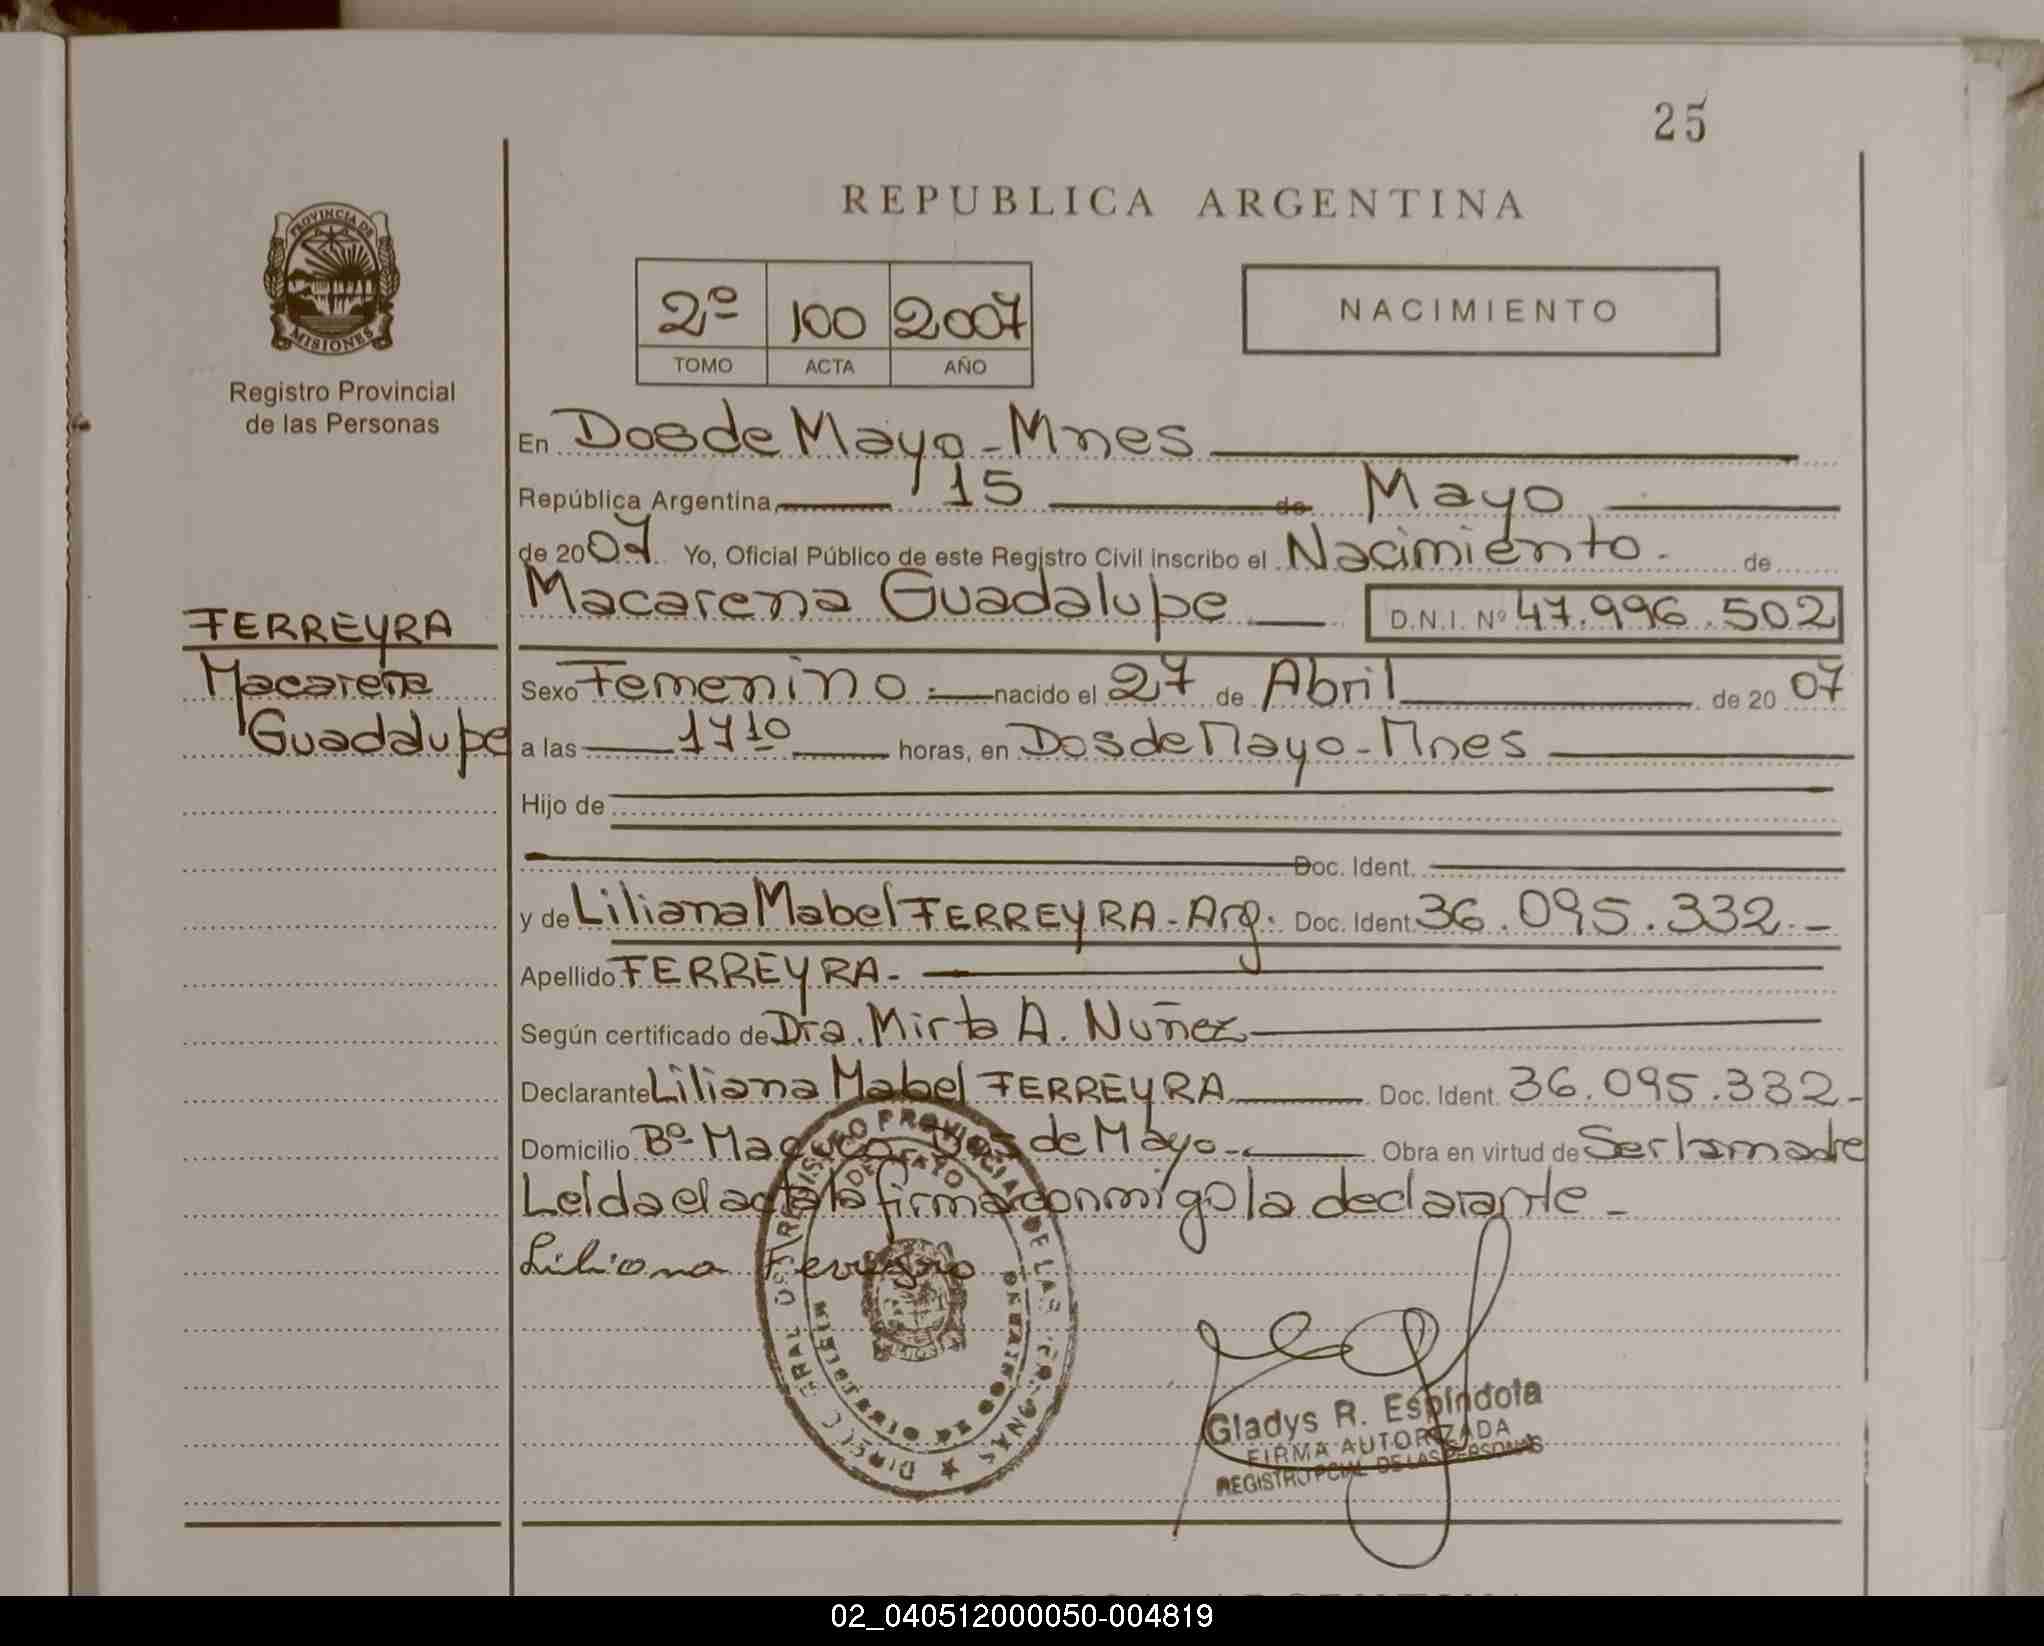 25
REPUBLICA ARGENTINA
PROVINCIA DE
MISIONES
Registro Provincial
de las Personas
2º 100 2007
TOMO ACTA AÑO
NACIMIENTO
En Dos de Mayo - Mnes
República Argentina, 15 de Mayo
de 2007 Yo, Oficial Público de este Registro Civil inscribo el Nacimiento. de
Macarena Guadalupe D.N.I. Nº 47.996.502
FERREYRA
Macarena
Guadalupe
Sexo Femenino.- nacido el 27 de Abril de 2007
a las 17 10 horas, en Dos de Mayo - Mnes
Hijo de
Doc. Ident.
y de Liliana Mabel FERREYRA - Arg. Doc. Ident. 36.095.332.-
Apellido FERREYRA.-
Según certificado de Dra. Mirta A. Nuñez
Declarante Liliana Mabel FERREYRA Doc. Ident. 36.095.332-
Domicilio Bº Dos de Mayo.- Obra en virtud de Ser la madre
Leída el acta la firma conmigo la declarante -
Liliana Ferreyra
REGISTRO PROVINCIAL DE LAS PERSONAS
DOS DE MAYO
Gladys R. Espíndola
FIRMA AUTORIZADA
REGISTRO PCIAL DE LAS PERSONAS
02_040512000050-004819